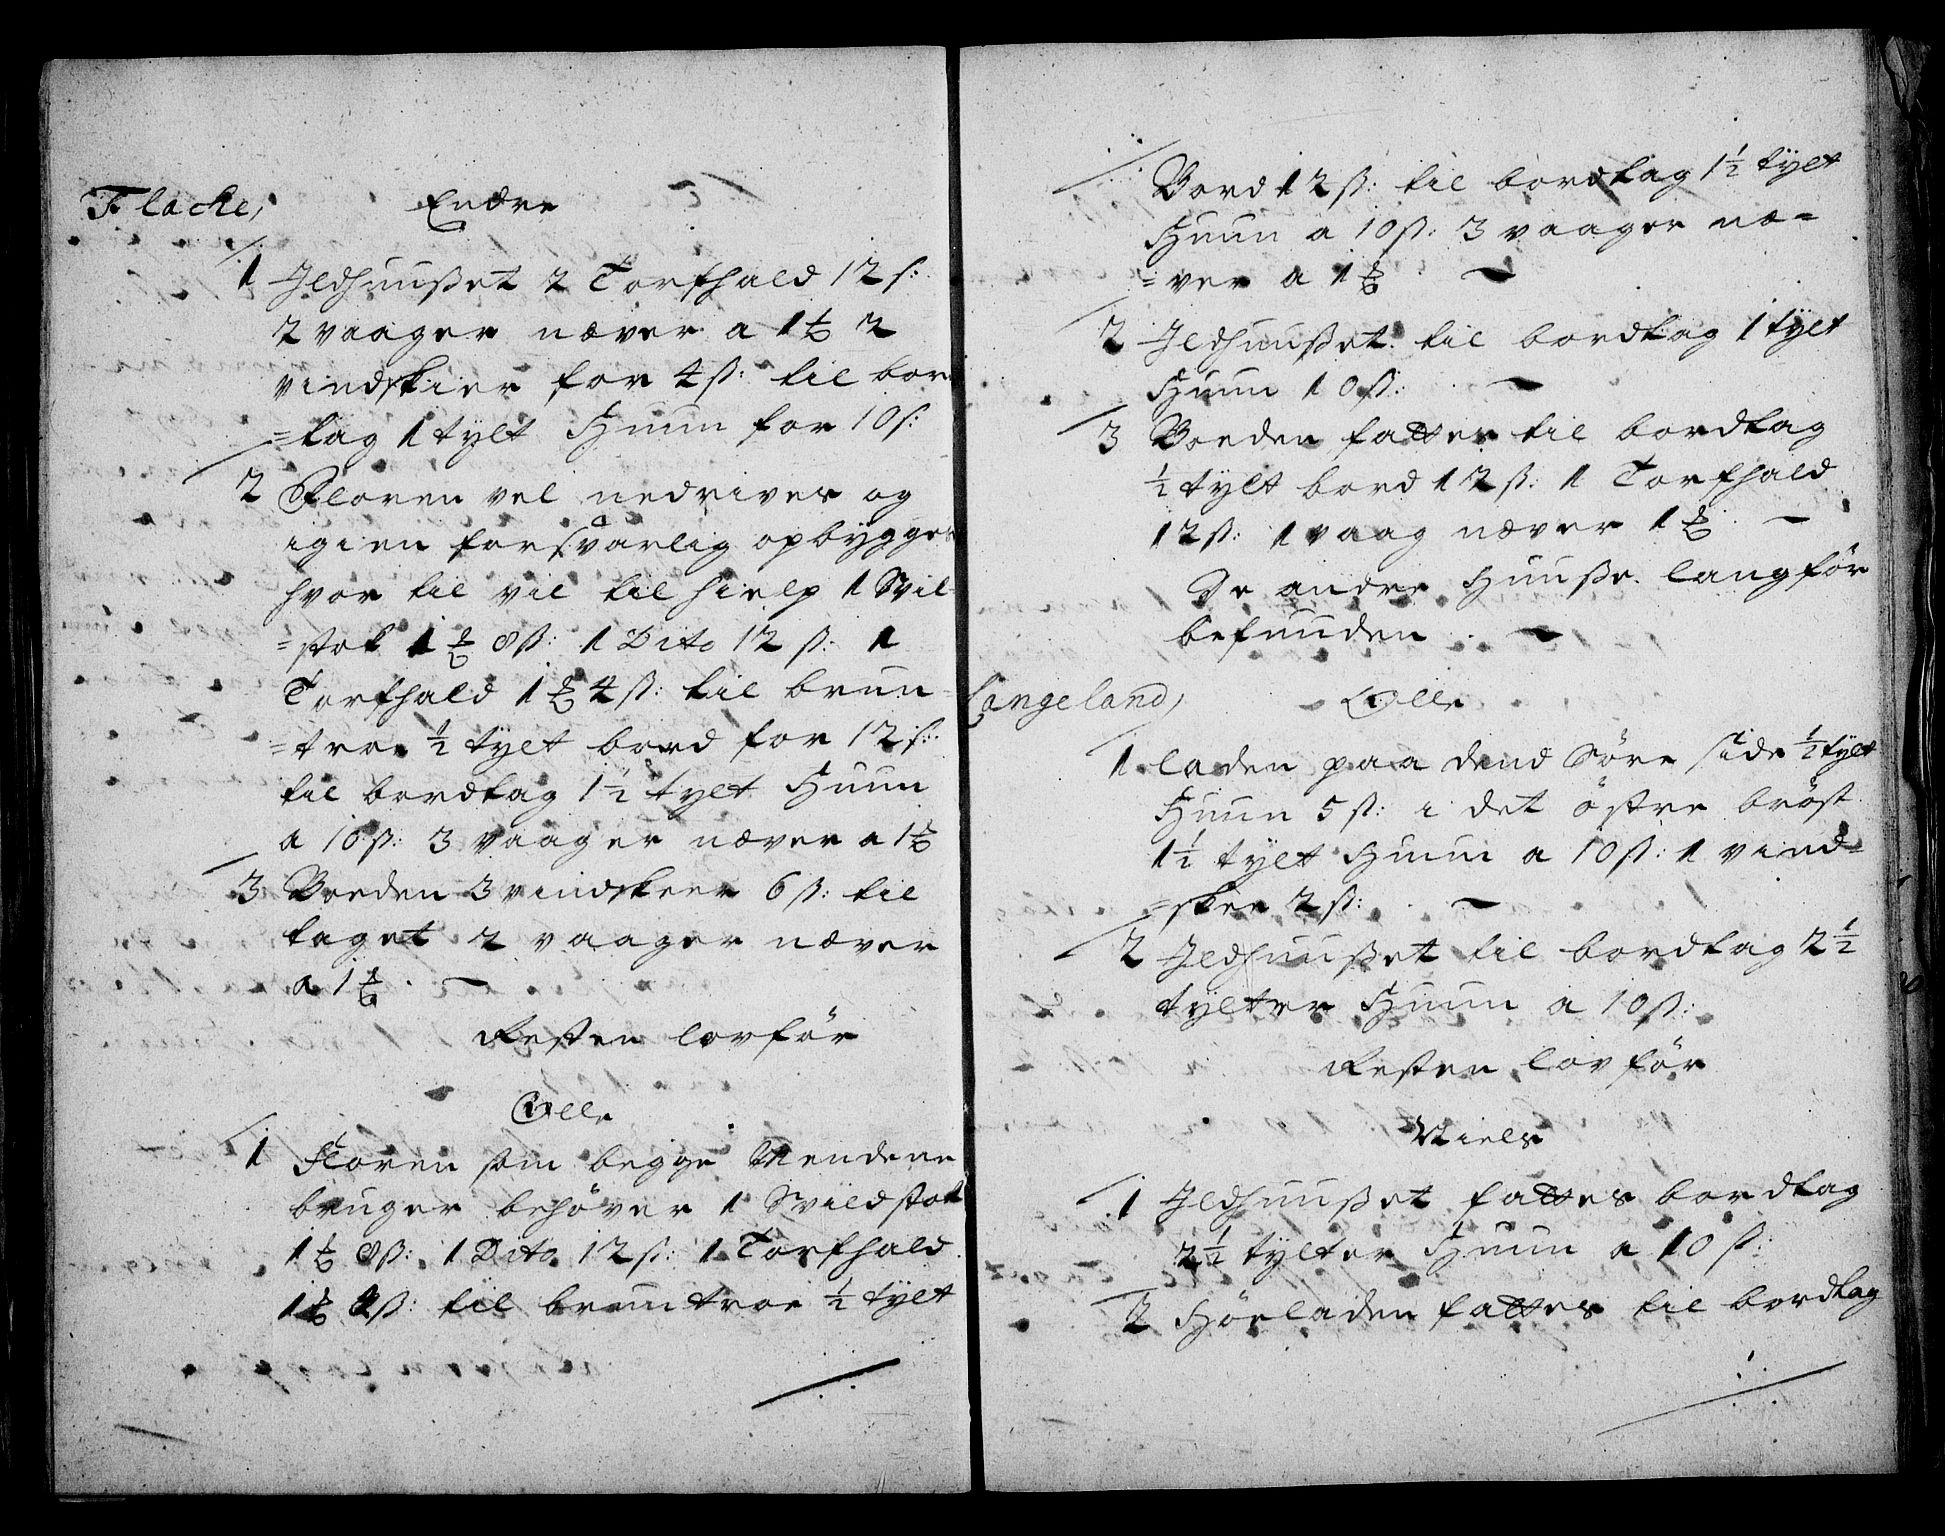 Flache,
Endre
1 Jldhuuset 2 Torfhald 12 s:
2 vaager næver a 1 ℔ 2
vindskier for 4 ß: til bor
=tag 1 tylt Huun for 10 s:
2 Floren vel nedrives og
igien forsvarlig opbygges
hvor til vil til hielp 1 Svil
=stok 1 ℔ 8 ß: 1 Dito 12 ß: 1
Torfhald 1 ℔ 4 ß: til bruu
=troe ½ tylt bord for 12 s:
til bordtag 1½ tylt Huun
a 10 ß: 3 vaager næver a 1 ℔
3 Boeden 3 vindskeer 6 ß: til
taget 2 vaager næver
a 1 ℔. —
Resten lovfør
Olle
1 Floren som begge Mendene
bruger behøver 1 Svildstok
1 ℔ 8 ß: 1 Dito 12 ß: 1 Torfhald
1 ℔ 4 ß: til bruutroe ½ tylt
Bord 12 ß: til bordtag 1½ tylt
Huun a 10 ß: 3 vaager næ=
=ver a 1 ℔ —
2 Jldhuuset til bordtag 1 tylt
Huun 10 ß: —
3 Boeden fattes til bordtag
½ tylt bord 12 ß: 1 Torfhald
12 ß: 1 vaag næver 1 ℔. —
De andre Huuse langfør
befunden. —
Langeland,
Olle
1 laden paa dend Søre side ½ tylt
Huun 5 ß: i det østre brøst
1½ tylt Huun a 10 ß: 1 vind=
=skee 2 ß: —
2 Jldhuuset til bordtag 2½
tylter Huun a 10 ß:
Resten lovfør
Niels
1 Jldhuuset fattes bordtag
2½ tylter Huun a 10 ß:
2 Høeladen fattes til bordtag